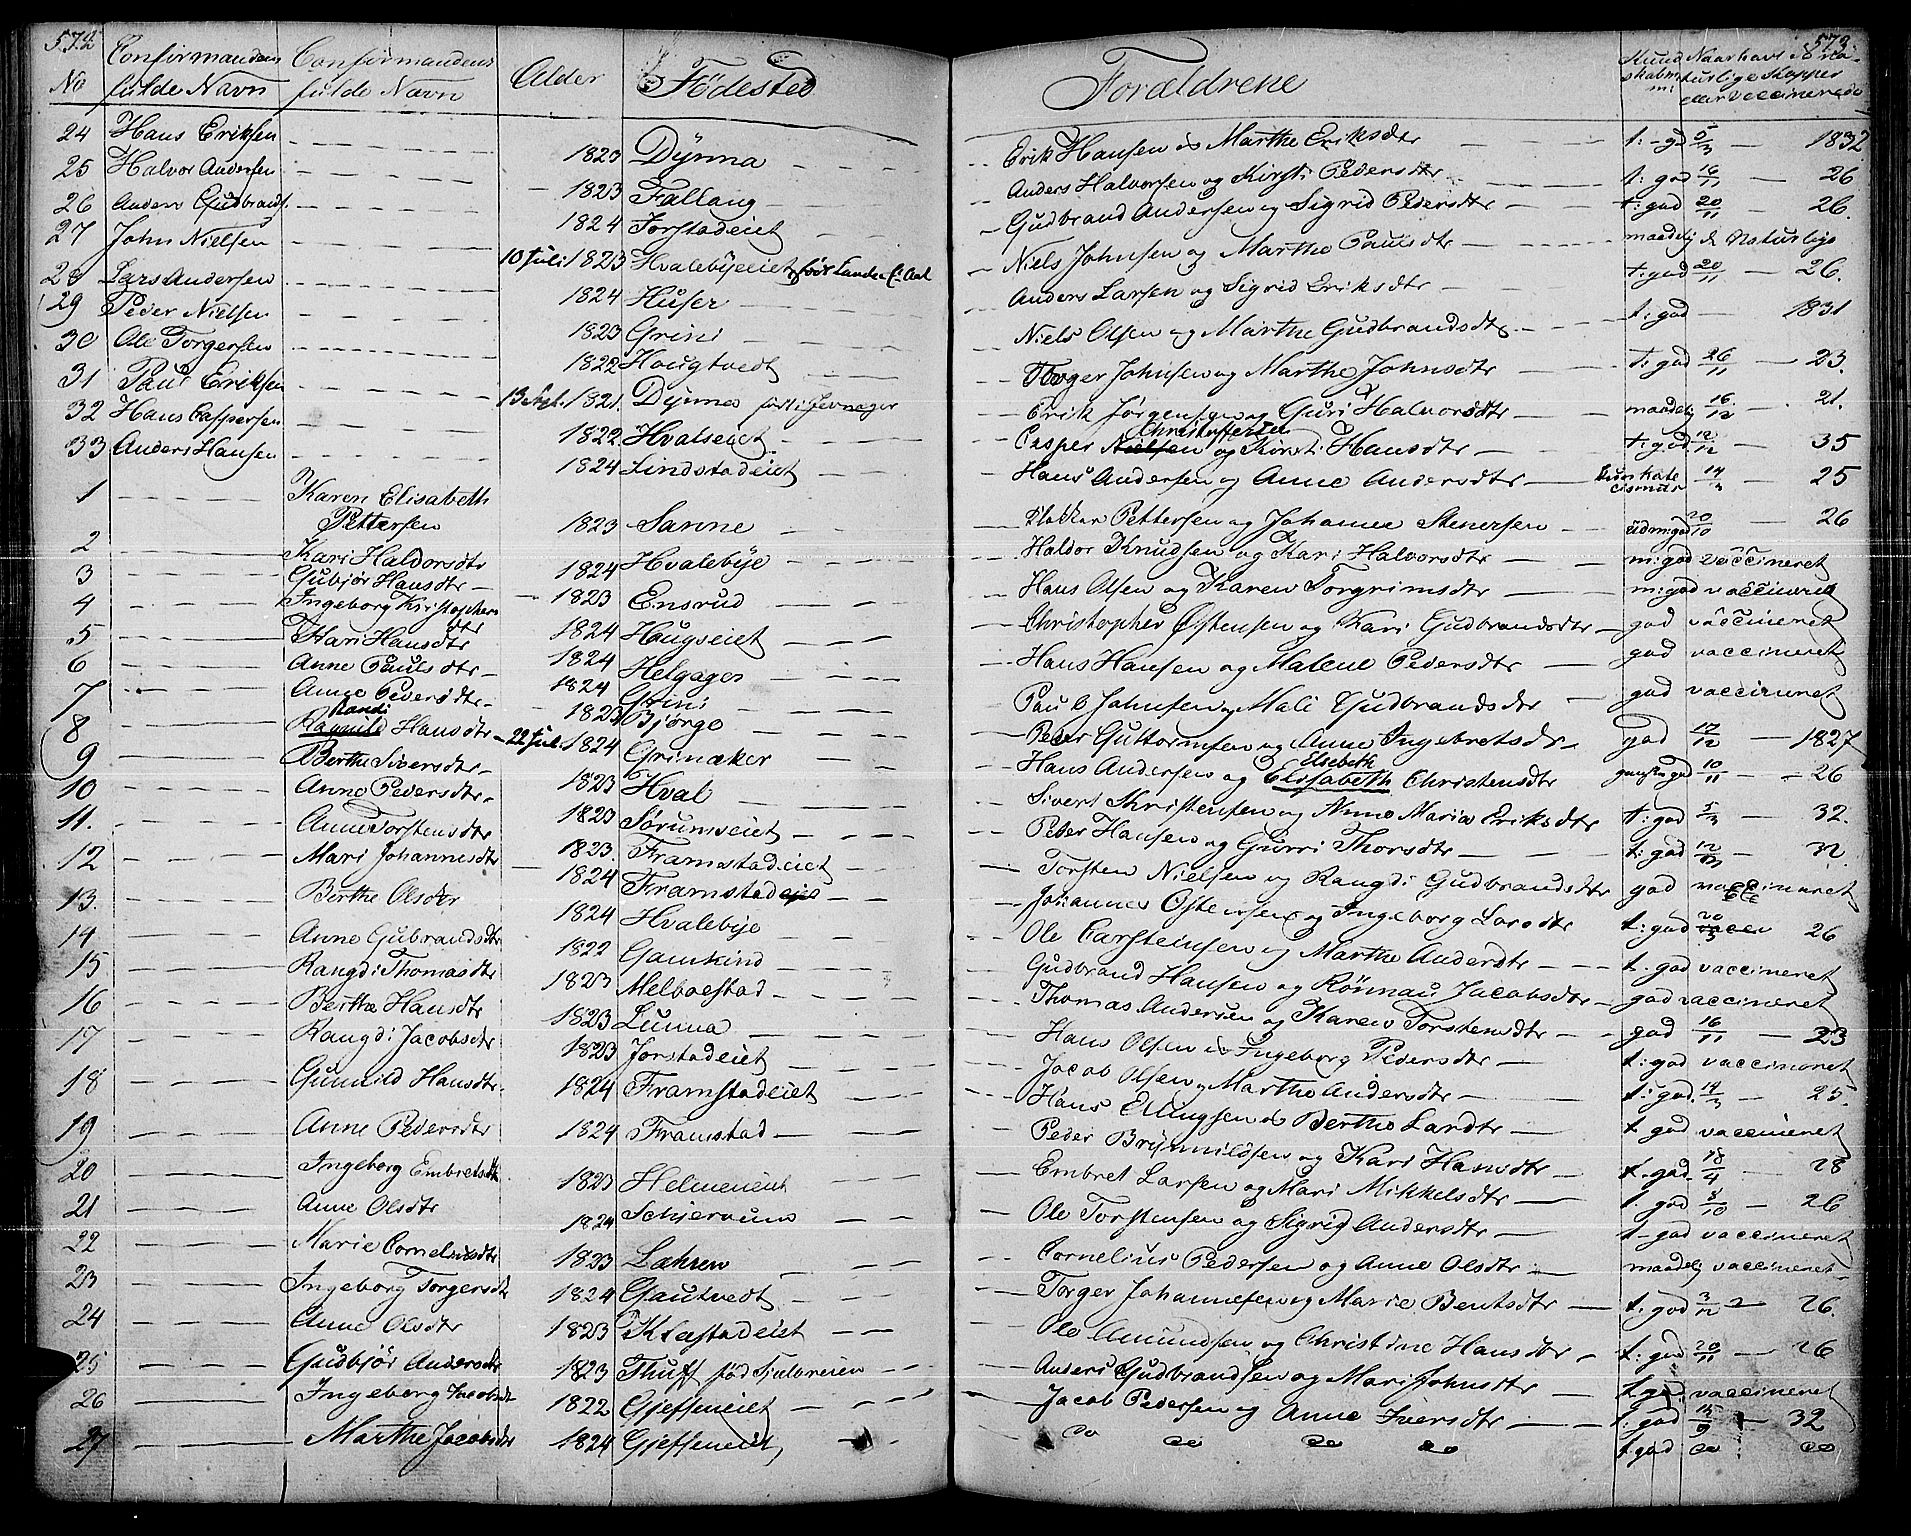 572
573.
Confirmandens Confirmandens
No fulde Navn fulde Navn Alder Födested Forældrene
24 Hans Eriksen 1823 Dynna Erik Hansen og Marthe Eriksdtr t: god 5/3 1832
25 Halvor Andersen 1823 Fallang Anders Halvorsen og Kirsti Pedersdtr t: god 16/11 26
26 Anders Gudbrands. 1824 Jorstadeiet Gudbrand Andersen og Sigrid Pedersdtr t: god 20/11 26.
27 John Nielsen 10 Juli 1823 Hvalebyeiet Niels Johnsen og Marthe Paulsdtr maadelig d: Naturlige
28 Lars Andersen 1824 Huser Anders Larsen og Sigrid Eriksdtr t: god 20/11 26.
29 Peder Nielsen 1823 Grini Niels Olsen og Marthe Gudbrandsdtr t: god 1831
30 Ole Torgersen 1822 Hougtvedt Torger Johnsen og Marthe Johnsdtr t: god 26/11 23.
31 Paul Eriksen 13 Sept. 1821. Dynna født i Jevnager Erik Jörgensen og Guri Halvorsdtr maadelig 16/12 21.
32 Hans Caspersen 1822 Hvalseiet Casper Nielsen Christophersen og Kirsti Hansdtr t: god 12/12 35
33 Anders Hansen 1824 Lindstadeiet Hans Andersen og Anne Andersdtr 14/3 25
1 Karen Elisabeth
Pettersen 1823 Sanne Pettersen og Johanne Stenersen udm: god 20/10 26
2 Kari Haldorsdtr 1824 Hvalebye Haldor Knudsen og Kari Halvorsdtr m: god vaccineret
3 Gubjör Hansdtr 1823 Ensrud Hans Olsen og Karen Torgrimsdtr m: god vaccineret
4 Ingeborg Kristophers
dtr 1824 Haugseiet Christopher Östensen og Kari Gudbrandsdtr god vaccineret
5 Kari Hansdtr 1824 Helgager Hans Hansen og Malene Pedersdtr god vaccineret
6 Anne Paulsdtr 1824 Grini Paul Johnsen og Mali Gudbrandsdtr god vaccineret
7 Anne Pedersdtr 1823 Bjørge Peder Guttormsen og Anne Ingebretsdtr god 17/12 1827
8 Randi
Ragnild Hansdtr 22 Jul. 1824 Grinaker Hans Andersen og Elsebeth Elisabeth Christensdtr ganske god 10/11 26
9 Berthe Siversdtr 1823 Hval Sivert Christensen og Anne Maria Eriksdtr t: god 5/3 32.
10 Anne Pedersdtr 1823 Sørumseiet Peder Hansen og Gurri Thorsdtr t: god 32.
11. Anne Torstensdtr 1823. Framstadeiet Torsten Nielsen og Rangdi Gudbrandsdtr god vaccineret
12 Mari Johannesdtr 1824 Framstadeie Johannes Ostensen og Ingeborg Larsdtr t: god 20/3 26
13. Berthe Olsdtr 1824 Hvalebye Ole Carsteinsen og Marthe Andersdtr t. god vaccineret
14 Anne Gubrandsdtr 1822 Gamkind Gudbrand Hansen og Rönnau Jacobsdtr god vaccineret
15 Rangdi Thomasdtr 1823 Melboestad Thomas Andersen og Karen Torstensdtr god 16/11 23
16 Berthe Hansdtr 1823 Lunna Hans Olsen og Ingeborg Pedersdtr t: god vaccineret
17 Rangdi Jacobsdtr 1823 Jorstadeiet Jacob Olsen og Marthe Andersdtr t: god. 14/3 25.
18 Gunnild Hansdtr 1824 Framstadeiet Hans Ellingsen og Berthe Larsdtr t. god vaccineret
19 Anne Pedersdtr 1824 Framstad Peder Brynnildsen og Kari Hansdtr t. god 18/4 28
20 Ingeborg Embretsdtr 1823 Helmeneiet Embret Larsen og Mari Mikkelsdtr t. god 8/10 26
21 Anne Olsdtr 1824 Schjervum Ole Torstensen og Sigrid Andersdtr t. god vaccineret
22 Marie Corneliusdtr 1823 Læhren Cornelius Pedersen og Anne Olsdtr maadelig vaccineret
23 Ingeborg Torgersdtr 1824 Gautvedt Torger Johannesen og Marie Bentsdtr t: god 3/12 26.
24 Anne Olsdtr 1823 Klæstadeiet Ole Amundsen og Christine Hansdtr t: god 20/11 26
25 Gudbjör Andersdtr 1823 Thuff fød Anders Gudbrandsen og Mari Johnsdtr t. god vaccineret
26 Ingeborg Jacobsdtr 1822 Gjefseneiet Jacob Pedersen og Anne Iversdtr t: god 32
27 Marthe Jacobsdtr 1824 Gjefseneiet, do do do do t god do do